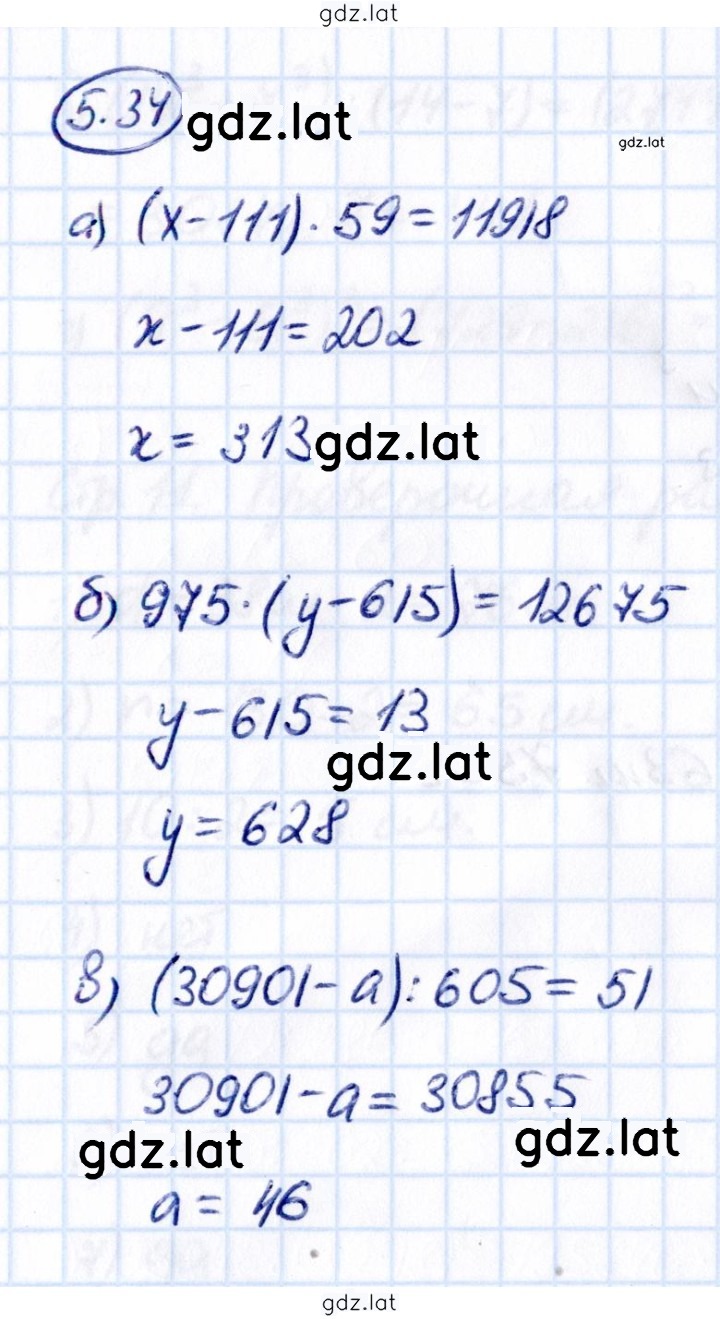 gdz.lat
5.34 gdz.lat
gdz.lat
а) (x-111)·59=11918
x-111=202
x=313 gdz.lat
б) 975·(y-615)=12675
y-615=13
gdz.lat
y=628
в) (30901-a):605=51
30901-a=30855
gdz.lat gdz.lat
a=46
gdz.lat